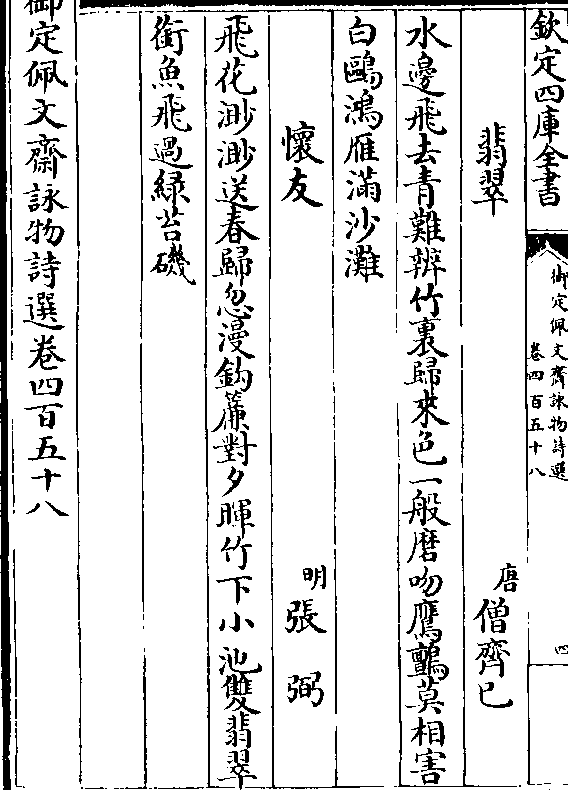 欽定四庫全書
御定佩文齋詠物詩選
卷四百五十八
四
翡翠
唐僧齊己
水邊飛去青難辨竹裏歸來色一般磨吻鷹鸇莫相害
白鷗鴻雁滿沙灘
懷友
明張弼
飛花渺渺送春歸忽漫鈎簾對夕暉竹下小池雙翡翠
銜魚飛過綠苔磯
御定佩文齋詠物詩選卷四百五十八